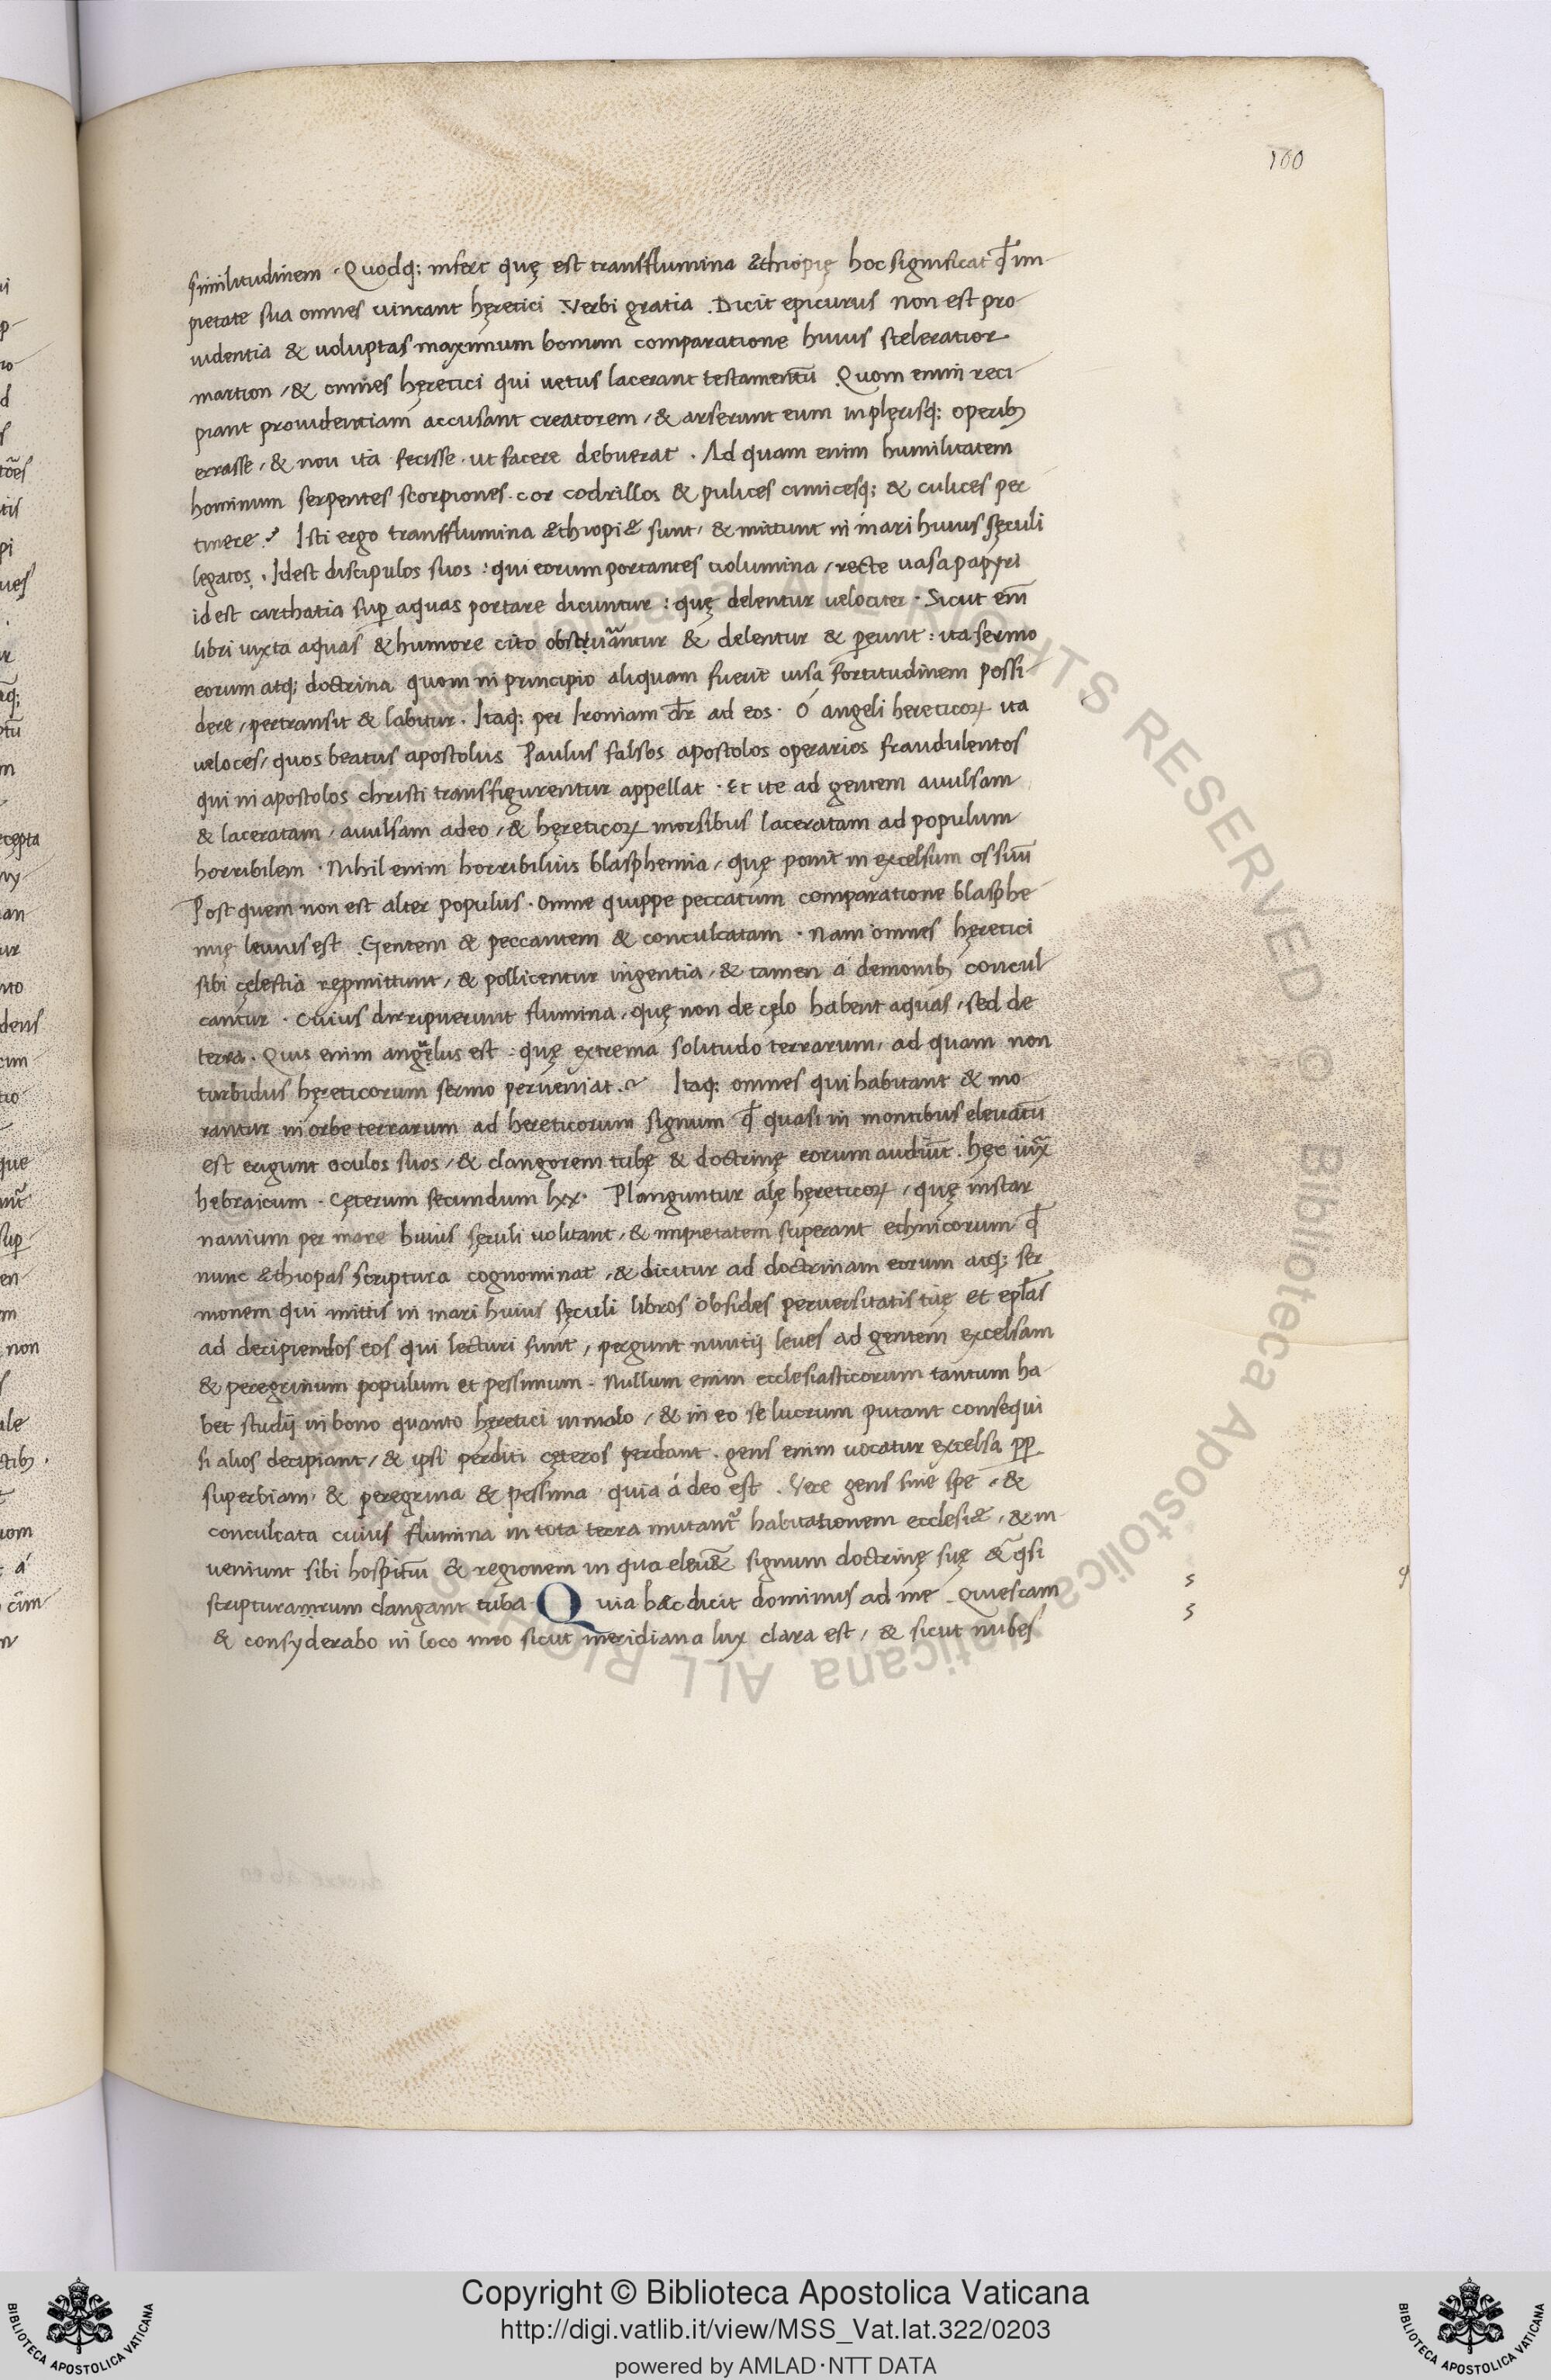 100
similitudinem. Quodq; infert quę est transflumina æthiopię hoc significat ꝙ im
pietate sua omnes uincant hęretici. Verbi gratia. Dicit epicurus non est pro
uidentia & uoluptas maximum bonum comparatione huius sceleratior
martion, & omnes hęretici qui uetus lacerant testamentū Quom enim reci
piant prouidentiam accusant creatorem, & asserunt eum in plęrisq; operibꝫ
errasse, & non ita fecisse. ut facere debuerat. Ad quam enim humilitatem
hominum serpentes scorpiones. cor codrillos & pulices cimicesq; & culices per
tinere? Isti ergo transflumina æthiopiæ sunt, & mittunt in mari huius sęculi
legatos. Idest discipulos suos: qui eorum portantes uolumina, recte uasa papyri
id est carthatia suꝑ aquas portare dicuntur: quę delentur uelociter. Sicut em̄
libri iuxta aquas & humore cito & delentur & ꝑeunt: ita sermo
eorum atq; doctrina quom in principio aliquam fuerit uisa fortitudinem possi
dere, pertransit & labitur. Itaq; per Ironiam dr̄ ad eos. ó angeli hereticoꝝ ita
ueloces, quos beatus apostolus Paulus falsos apostolos operarios fraudulentos
qui in apostolos christi transfigurentur appellat. Et ite ad gentem auulsam
& laceratam, auulsam adeo, & hęreticoꝝ morsibus laceratam ad populum
horribilem. Nihil enim horribilius blasphemia, quę ponit in excelsum os suū
Post quem non est alter populus. Omne quippe peccatum comparatione blasphe
mię leuius est. Gentem & peccantem & conculcatam. Nam omnes hęretici
sibi cęlestia repmittunt, & pollicentur ingentia, & tamen á demonibꝫ concul
cantur. Cuius dirripuerunt flumina, quę non de cęlo habent aquas, sed de
terra. Quis enim angelus est: quę extrema solitudo terrarum, ad quam non
turbidus hęreticorum sermo perueniat? Itaq; omnes qui habitant & mo
rantur in orbe terrarum ad hereticorum signum ꝙ quasi in montibus eleuatū
est erigunt oculos suos, & clangorem tubę & doctrinę eorum audiūt. hęc iuxͣ
hebraicum. Cęterum secundum lxx. Planguntur alę hęreticoꝝ, quę instar
nauium per mare huius sęculi uolitant, & impietatem superant ethnicorum ꝙ
nunc æthiopas scriptura cognominat, & dicitur ad doctrinam eorum atq; ser
monem qui mittis in mari huius sęculi libros obsides peruersitatis tuę et epl̄as
ad decipiendos eos qui lecturi sunt, pergunt nuntij leues ad gentem excelsam
& peregrinum populum et pessimum. Nullum enim ecclesiasticorum tantum ha
bet studij in bono quanto hęretici in malo, & in eo se lucrum putant consequi
si alios decipiant, & ipsi perditi cęteros perdant. gens enim uocatur excelsa ꝓꝑ
superbiam, & peregrina & pessima quia á deo est. Vere gens sine spe, &
conculcata cuius flumina in tota terra mutant᷑ habitationem ecclesiæ, & in
ueniunt sibi hospitiū & regionem in qua signum doctrinę suę & q̄si
clangant tuba Quia hæc dicit dominus ad me. Quiescam
& consyderabo in loco meo sicut meridiana lux clara est, & sicut nubes
Copyright © Biblioteca Apostolica Vaticana
http://digi.vatlib.it/view/MSS_Vat.lat.322/0203
powered by AMLAD·NTT DATA